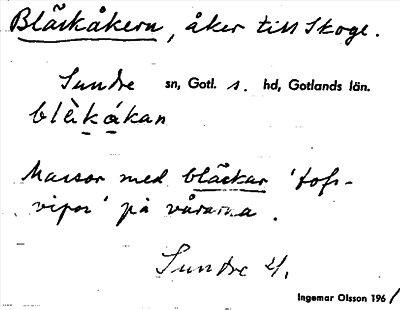 Bläckåkern, åker till Skoge.
Sundre sn, Gotl. s. hd, Gotlands län.
blèkákan
Massor med bläckar 'tofs-
vipor' på vårarna.
Sundre 4/.
Ingemar Olsson 1961